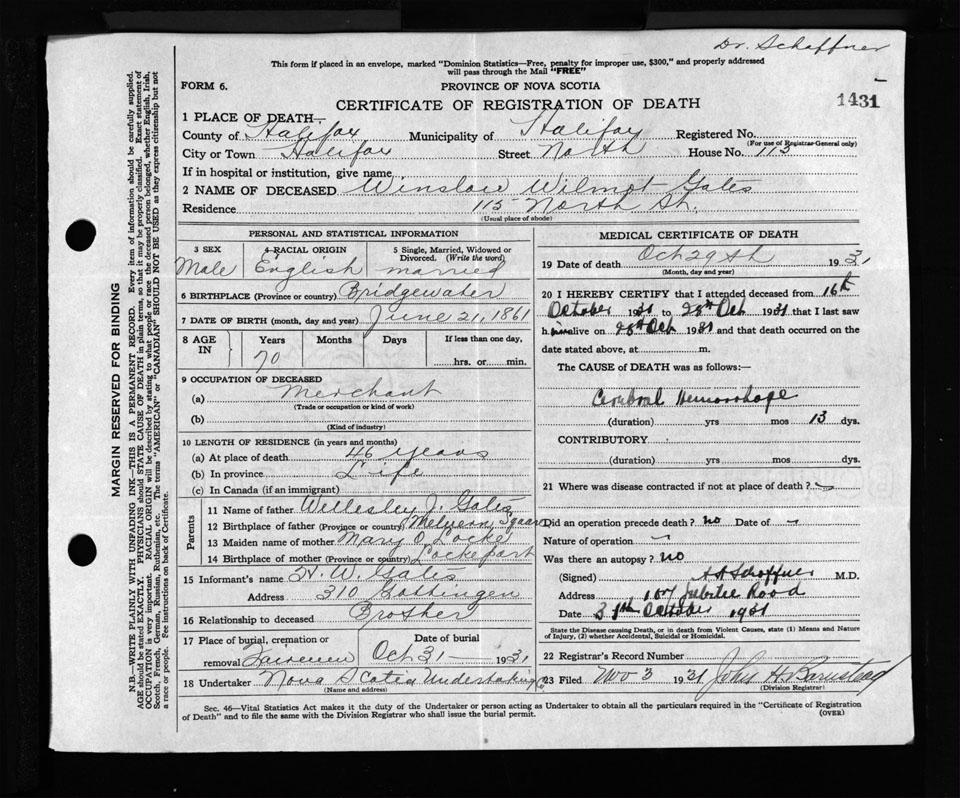 Dr. Schaffner
This form if placed in an envelope, marked "Dominion Statistics—Free, penalty for improper use, $300," and properly addressed
will pass through the Mail "FREE"
FORM 6.
PROVINCE OF NOVA SCOTIA
1431
CERTIFICATE OF REGISTRATION OF DEATH
1 PLACE OF DEATH—
County of Halifax Municipality of Halifax Registered No.
(For use of Registrar-General only)
City or Town Halifax Street North House No. 115
If in hospital or institution, give name
2 NAME OF DECEASED Winslow Wilmot Gates
Residence 115 North St.
(Usual place of abode)
PERSONAL AND STATISTICAL INFORMATION
3 SEX 4 RACIAL ORIGIN 5 Single, Married, Widowed or
Divorced. (Write the word)
Male English married
6 BIRTHPLACE (Province or country) Bridgewater
7 DATE OF BIRTH (month, day and year) June 21, 1861
8 AGE IN Years Months Days If less than one day,
70 hrs. or min.
9 OCCUPATION OF DECEASED
(a) Merchant
(Trade or occupation or kind of work)
(b)
(Kind of industry)
10 LENGTH OF RESIDENCE (in years and months)
(a) At place of death 46 years
(b) In province Life
(c) In Canada (if an immigrant)
Parents
11 Name of father Wellesley J. Gates
12 Birthplace of father (Province or country) Melvern Square
13 Maiden name of mother Mary O. Locke
14 Birthplace of mother (Province or country) Lockeport
15 Informant's name H. W. Gates
Address 310 Gottingen
16 Relationship to deceased Brother
17 Place of burial, cremation or Date of burial
removal Fairview Oct 31 1931
18 Undertaker Nova Scotia Undertaking Co
(Name and address)
MEDICAL CERTIFICATE OF DEATH
19 Date of death Oct 29th 1931
(Month, day and year)
20 I HEREBY CERTIFY that I attended deceased from 16th
October 1931 to 28th Oct 1931 that I last saw
h im alive on 28th Oct 1931 and that death occurred on the
date stated above, at m.
The CAUSE of DEATH was as follows:—
Cerebral Hemorrhage
(duration) yrs mos 13 dys.
CONTRIBUTORY
(duration) yrs mos dys.
21 Where was disease contracted if not at place of death?
Did an operation precede death? no Date of
Nature of operation
Was there an autopsy? no
(Signed) Schaffner M.D.
Address Jubilee Road
Date 31th October 1931
State the Disease causing Death, or in death from Violent Causes, state (1) Means and Nature
of Injury, (2) whether Accidental, Suicidal or Homicidal.
22 Registrar's Record Number
23 Filed Nov 3 1931 John H. Barnstead
(Division Registrar)
Sec. 46—Vital Statistics Act makes it the duty of the Undertaker or person acting as Undertaker to obtain all the particulars required in the "Certificate of Registration
of Death" and to file the same with the Division Registrar who shall issue the burial permit.
(OVER)
MARGIN RESERVED FOR BINDING
N.B.—WRITE PLAINLY WITH UNFADING INK—THIS IS A PERMANENT RECORD. Every item of information should be carefully supplied.
AGE should be stated EXACTLY. PHYSICIANS should STATE CAUSE OF DEATH in plain terms, so that it may be properly classified. Exact statement of
OCCUPATION is very important. RACIAL ORIGIN will be described by stating to what people or race the deceased person belonged, whether English, Irish,
Scotch, French, German, Russian, Ruthenian, etc. The terms "AMERICAN" or "CANADIAN" SHOULD NOT BE USED as they express citizenship but not
a race or people. See instructions on back of Certificate.